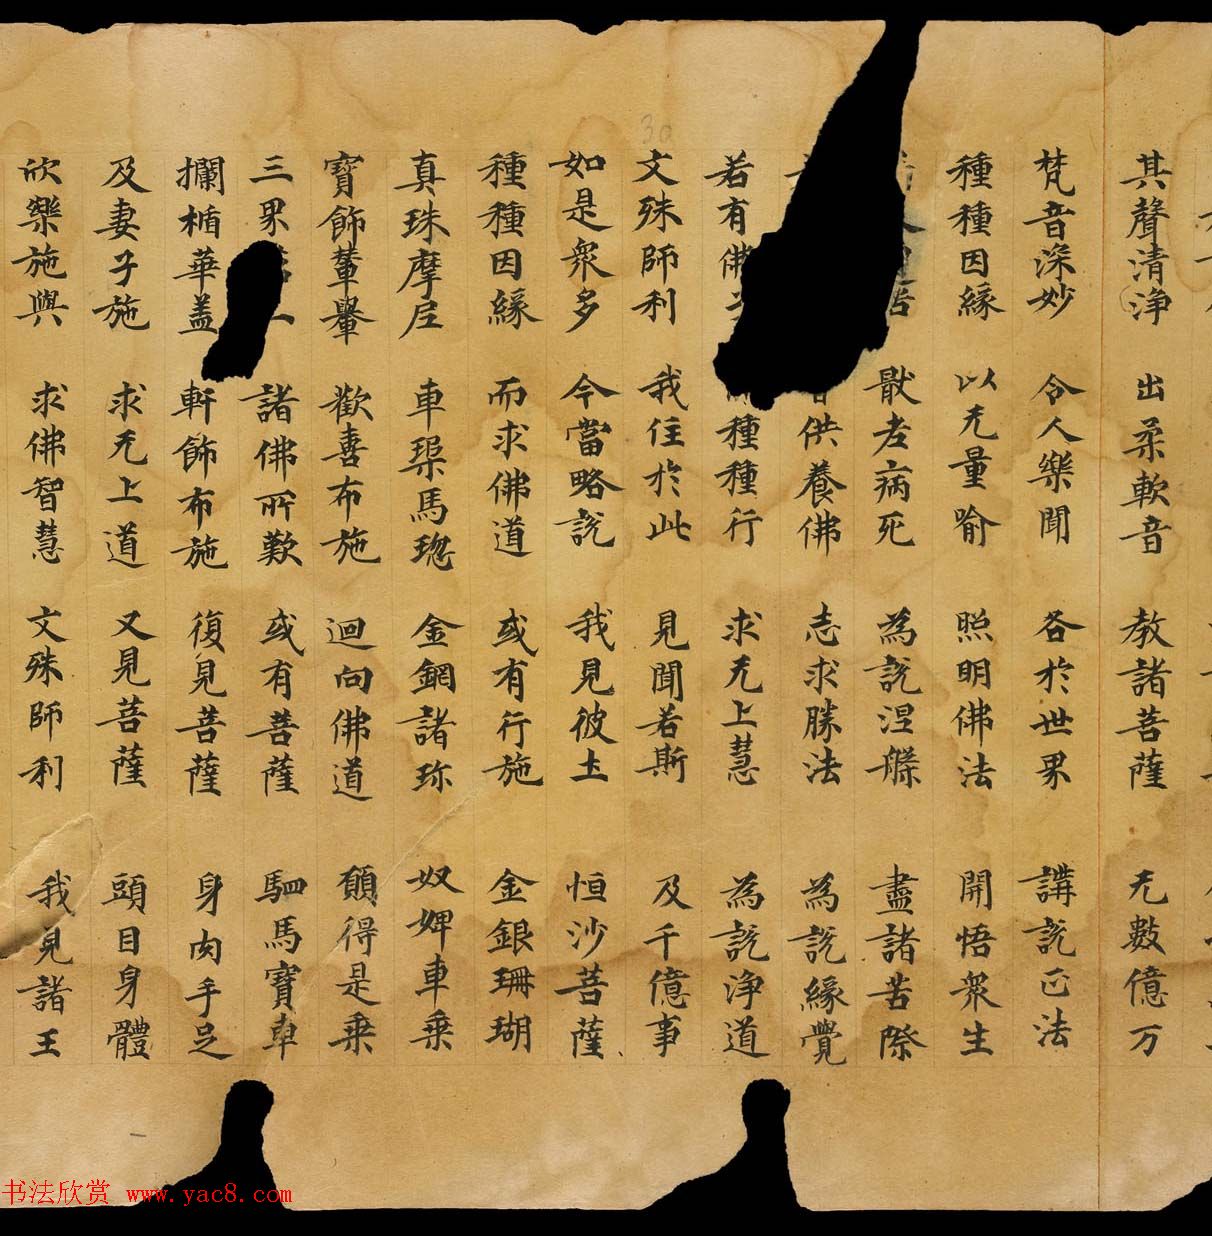 其聲清淨 出柔軟音 教諸菩薩 无數億万
梵音深妙 令人樂聞 各於世界 講說正法
種種因緣 以无量喻 照明佛法 開悟眾生
苦 猒老病死 為說涅槃 盡諸苦際
供養佛 志求勝法 為說緣覺
若有佛 種種行 求无上慧 為說淨道
文殊師利 我住於此 見聞若斯 及千億事
如是眾多 今當略說 我見彼土 恒沙菩薩
種種因緣 而求佛道 或有行施 金銀珊瑚
真珠摩尼 車璖馬瑙 金鋼諸珎 奴婢車乘
寶飾輦轝 歡喜布施 迴向佛道 願得是乘
三界 一 諸佛所歎 或有菩薩 駟馬寶車
欄楯華盖 軒飾布施 復見菩薩 身肉手足
及妻子施 求无上道 又見菩薩 頭目身體
欣樂施與 求佛智慧 文殊師利 我見諸王
30
书法欣赏 www.yac8.com